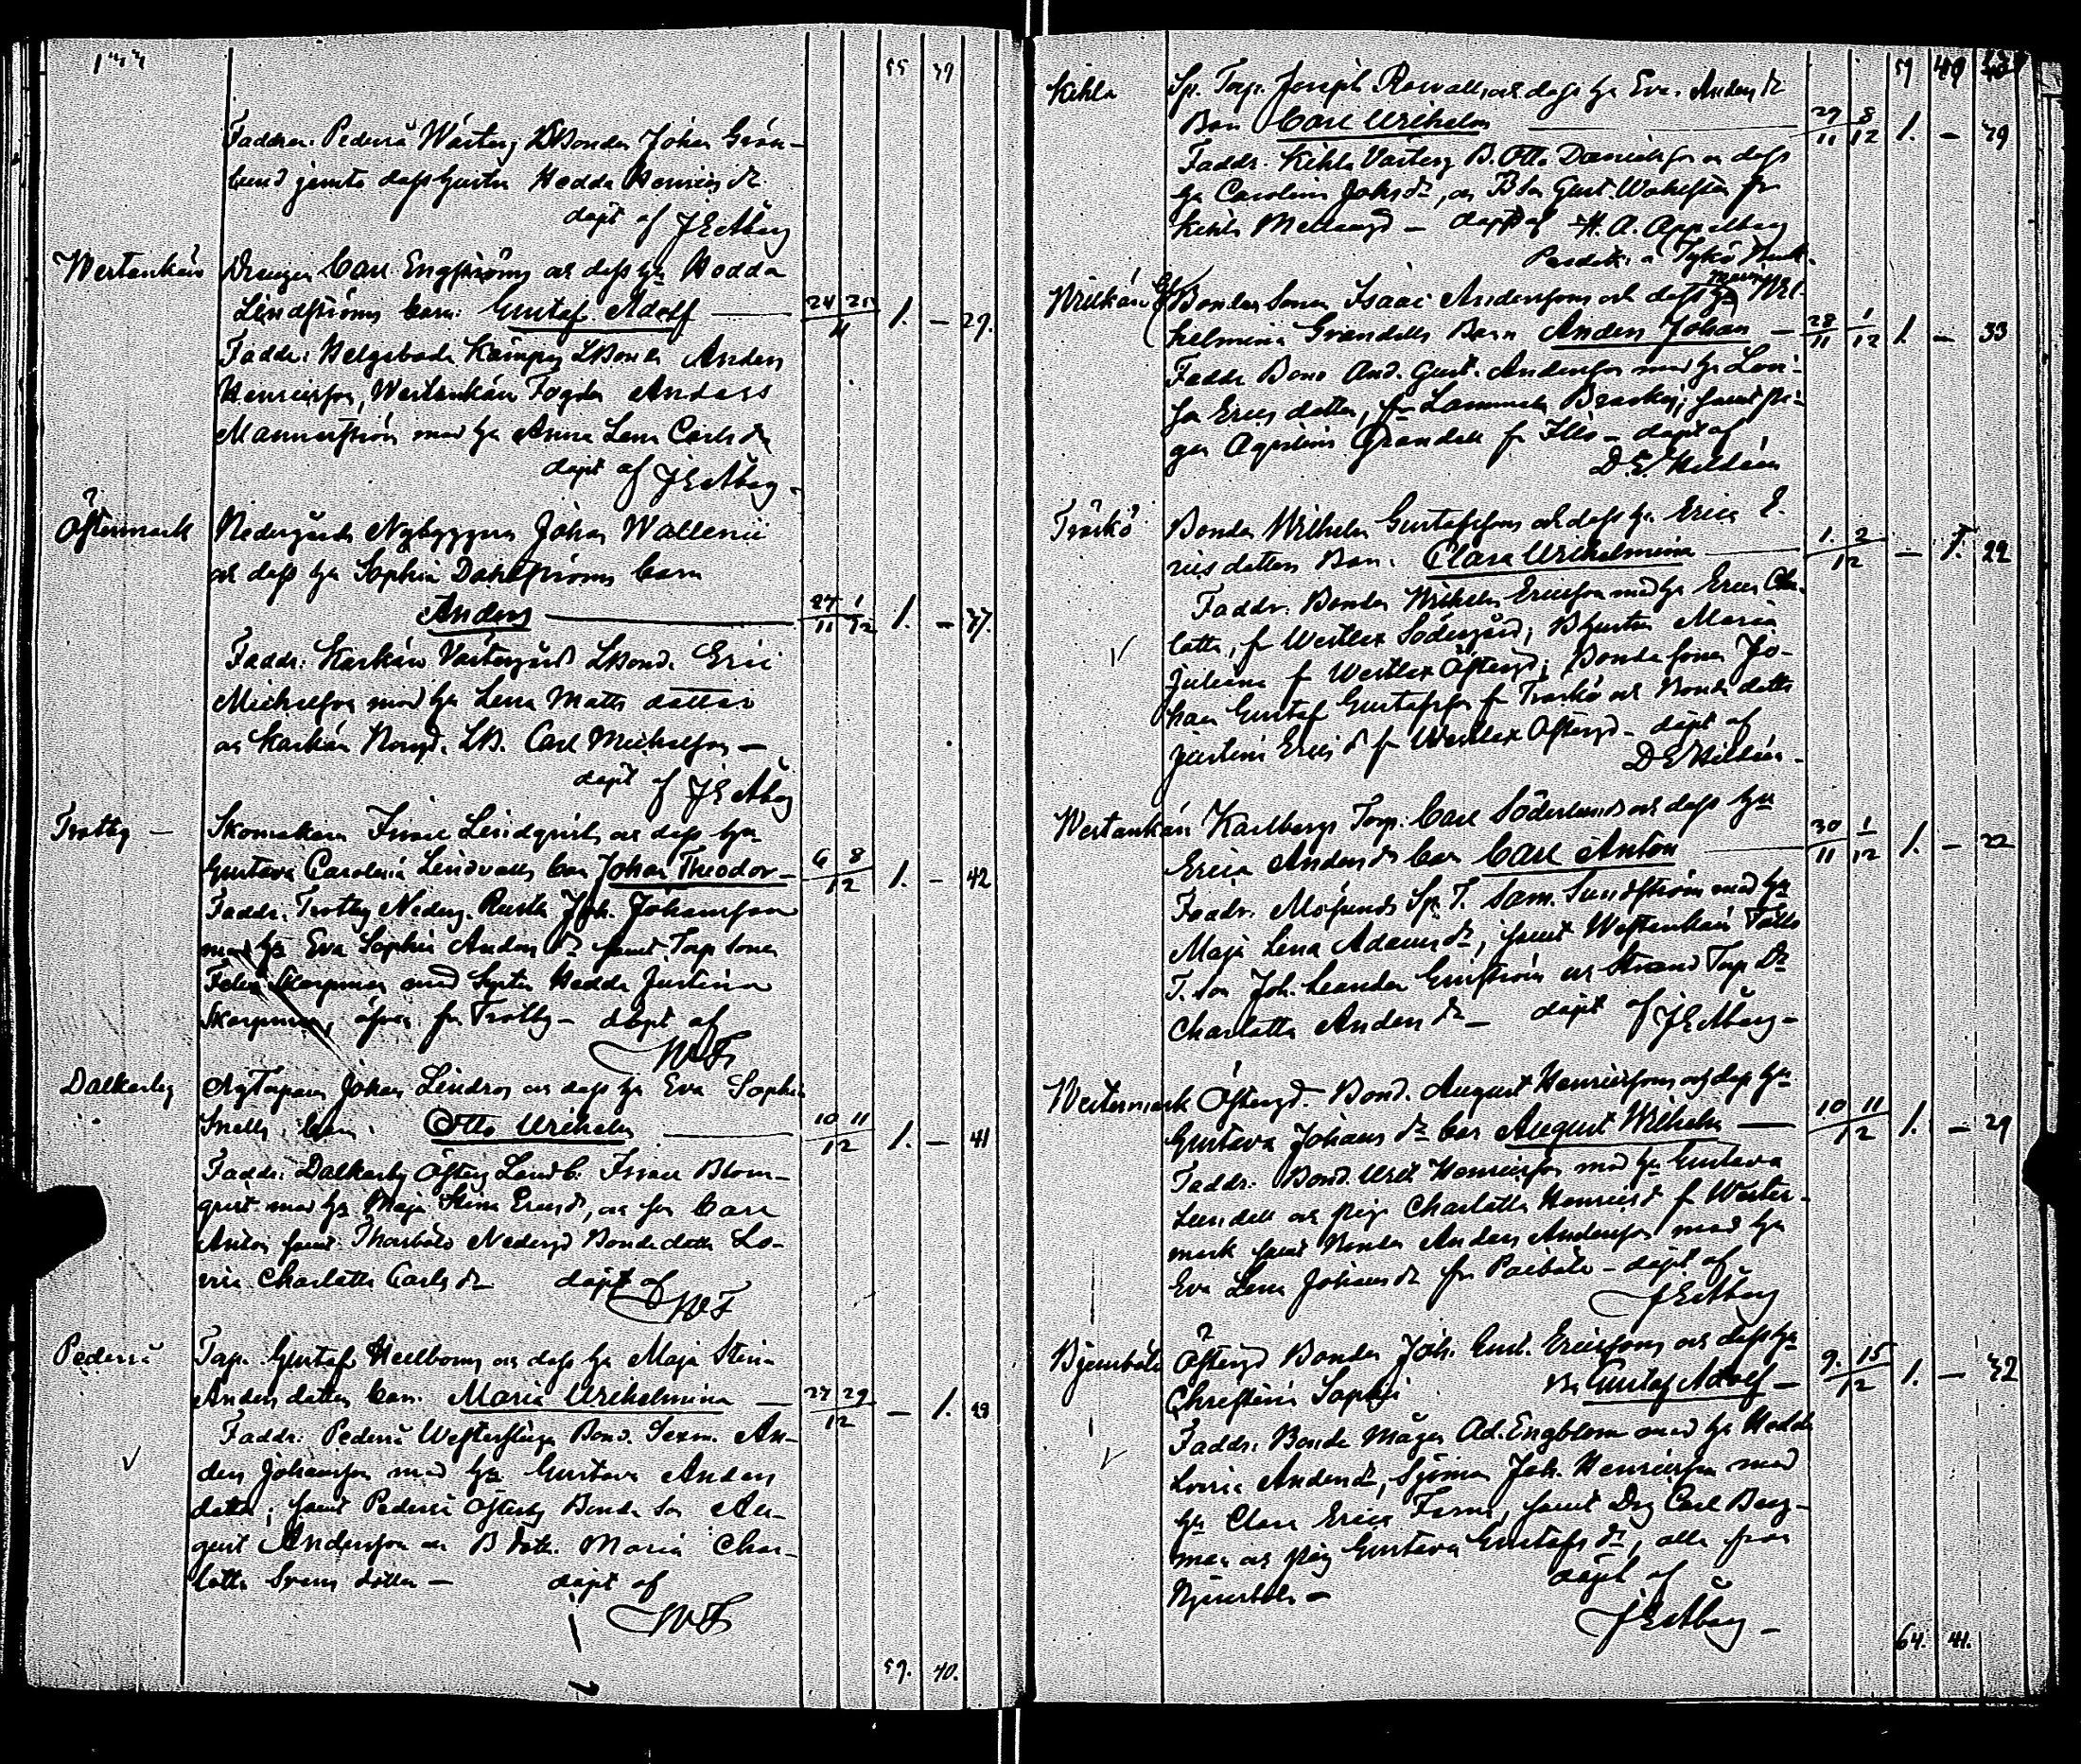 55 39
Faddrar: Pederså Wästerg LBonden Johan Grön-
lund jemte dess hustru Hedda Henrics dr
döpt af J E Åberg
Westankärr Drengen Carl Engströms och dess h:u Hedda
Lindströms barn: Gustaf Adolf 24 25 / 11 1. – 29.
Faddr: Helgeboda Kämpeg LBonde Anders
Henricsson, Westankärr Fogden Anders
Mannerström med h:u Anna Lena Carls dr
döpt af J E Åberg
Östermark Nedergårds Nybyggaren Johan Wallenii
och dess h:u Sophia Dahlströms barn
Anders 27/11 1/12 1. – 37.
Faddr: Karkärr Västergårds LBond. Eric
Michelsson med h:u Lena Matts dotter
och Karkärr Norrgd. LB. Carl Michelsson –
döpt af J E Åberg
Trotby – Skomakaren Isaac Lindqvists och dess h:u
Gustava Carolina Lindvalls barn Johan Theodor – 6 8 / 12 1. – 42
Faddr: Trotby Nederg. Rusth. Joh. Johansson
med h:u Eva Sophia Anders dr samt Torp sonen
Felix Skarpman med Syster Hedda Justina
Skarpman, från Trotby – döpt af
W F
Dalkarby Johan Lindros och dess h:u Eva Sophia
Snells barn: Otto Wilhelm 10 11 / 12 1. – 41
Faddr: Dalkarby Österg Landb. Isaac Blom-
qvist med h:u Maja Stina Erics dr, och son Carl
Anton samt Tharböle Nedergd Bonde dottr Lo-
visa Charlotta Carls dr döpt af
W F
Pederså Torp. Gustaf Hellboms och dess h:u Maja Stina
Anders dotters barn. Maria Wilhelmina – 27 29 / 12 – 1.
Faddr: Pederså Westerstuga Bond. Sexm. An-
ders Johansson med h:u Gustava Anders
dotter; samt Pederså Österby Bonde son Au-
gust Andersson och B dotr. Maria Char-
lotta Svens dotter – döpt af
W F
59. 40.
59 40
Kihla Sp. Torp. Joseph Rosvalls och dess h:u Eva Anders dr
Barn Carl Wilhelm 29/11 8/12 1. – 39
Faddr. Kihla Vasterg B. Otto Danielsson och dess
h:u Carolina Johs dr, och B son Gust. Wahlsten fr
Kihla Mellangd – döpt af H. A. Appelberg
Predik: a Tykö Bruk.
Wilkärr Bonden Sonen Isaac Anderssons och dess h:u Wil-
helmina Grandells Barn Anders Johan – 28/11 1/12 1. – 33
Faddr Bond And. Gust. Andersson med h:u Lovi-
sa Erics dotter, fr Lammala samt pi-
gan Agustina Grandell fr Illo – döpt af
D. E. Hildéen
Träskö Bonden Wilhelm Gustafssons och dess h:u Erica E-
rics dotters Barn. Clara Wilhelmina 1. 2 / 12 – 1. 22
Faddr. Bonden Wilhelm Ericsson med h:u Erica Char-
lotta, fr Westlax Södergård; B hustrun Maria
Juliana fr Westlax Östergd; Bonde sonen Jo-
han Gustaf Gustafsson fr Träskö och Bonde dottr
Justina Erics d fr Westlax Östergd – döpt af
D E Hildéen.
Westankärr Karlbergs Torp. Carl Söderlunds och dess h:u
Erica Anders dr barn Carl Anton 30/11 1/12 1. – 22
Faddr. Mösunds Sp. T. Sam. Sundström med h:u
Maja Lena Adams dr, samt Westankärr Tälls
T. son Joh. Leander Enström och Strand Torp Dr
Charlotta Anders dr – döpt af J E Åberg –
Westermark Östergd. Bond. August Henricssons och dess h:u
Gustava Johans dr barn August Wilhelm – 10 11 / 12 1. – 29
Faddr. Bond. Wilh Henricsson med h:u Gustava
Lundell och piga Charlotta Henrics d fr Wester-
mark samt Bonden Anders Andersson med h:u
Eva Lena Johans dr fr Paiböle – döpt af
J E Åberg
Bjensböle Östergd Bonden Joh. Gust. Ericssons och dess h:u
Christina Sophi Bn Gustaf Adolf – 9. 15 / 12 1. – 32
Faddr: Bonde Mågen Ad. Engblom med h:u Hedda
Lovisa Anders dr, Sjöman Joh. Henricsson med
h:u Clara Erica samt Drg Carl Berg-
man och pig Gustava Gustafs dr, alla från
Bjensböle – döpt af
J E Åberg –
64. 41.